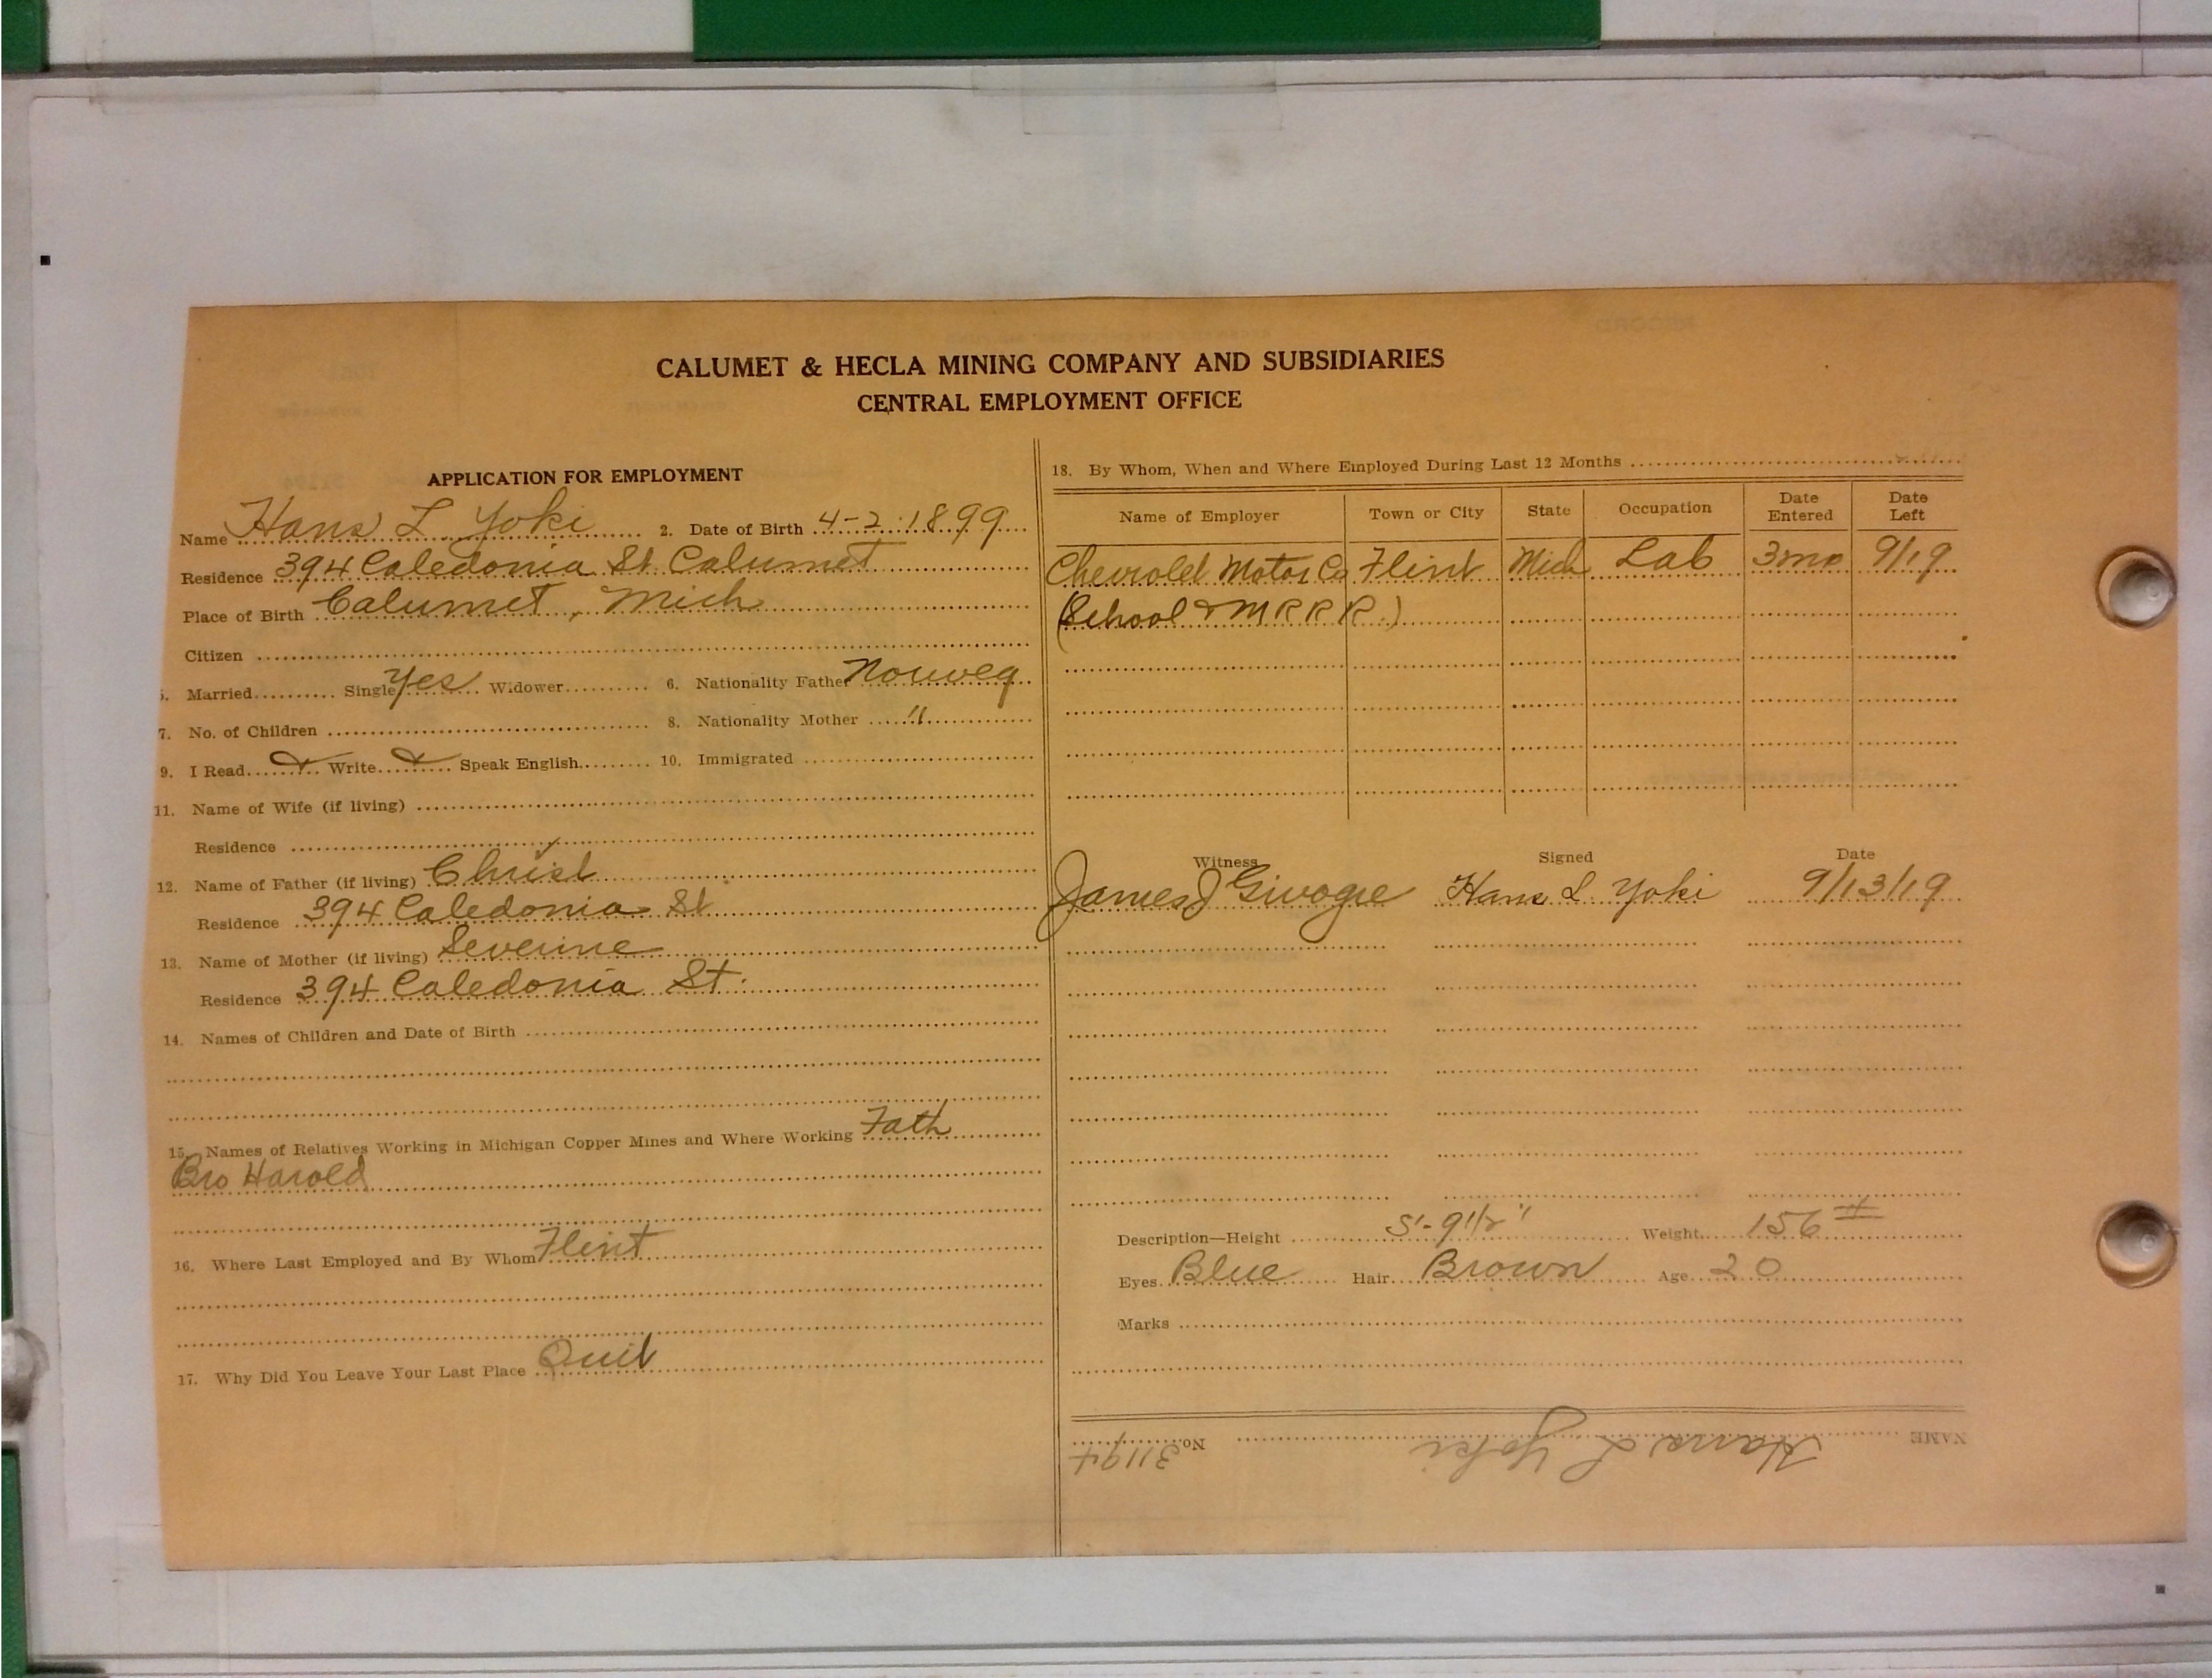 CALUMET & HECLA MINING COMPANY AND SUBSIDIARIES
CENTRAL EMPLOYMENT OFFICE
APPLICATION FOR EMPLOYMENT
Name Hans L Yoki 2. Date of Birth 4-2-1899
Residence 394 Caledonia St Calumet
Place of Birth Calumet, Mich
Citizen
5. Married Single Yes Widower 6. Nationality Father Norweg
7. No. of Children 8. Nationality Mother "
9. I Read Write Speak English 10. Immigrated
11. Name of Wife (if living)
Residence
12. Name of Father (if living) Christ
Residence 394 Caledonia St
13. Name of Mother (if living) Severine
Residence 394 Caledonia St.
14. Names of Children and Date of Birth
15. Names of Relatives Working in Michigan Copper Mines and Where Working Fath
Bro Harold
16. Where Last Employed and By Whom Flint
17. Why Did You Leave Your Last Place Quit
18. By Whom, When and Where Employed During Last 12 Months
Name of Employer Town or City State Occupation Date Entered Date Left
Chevrolet Motor Co Flint Mich Lab 3mo 9/19
(School & M R R R.)
Witness Signed Date
James J Hans L. Yoki 9/13/19
Description—Height 5'-9 1/2" Weight 156#
Eyes Blue Hair Brown Age 20
Marks
NAME Hans L Yoki No. 31194